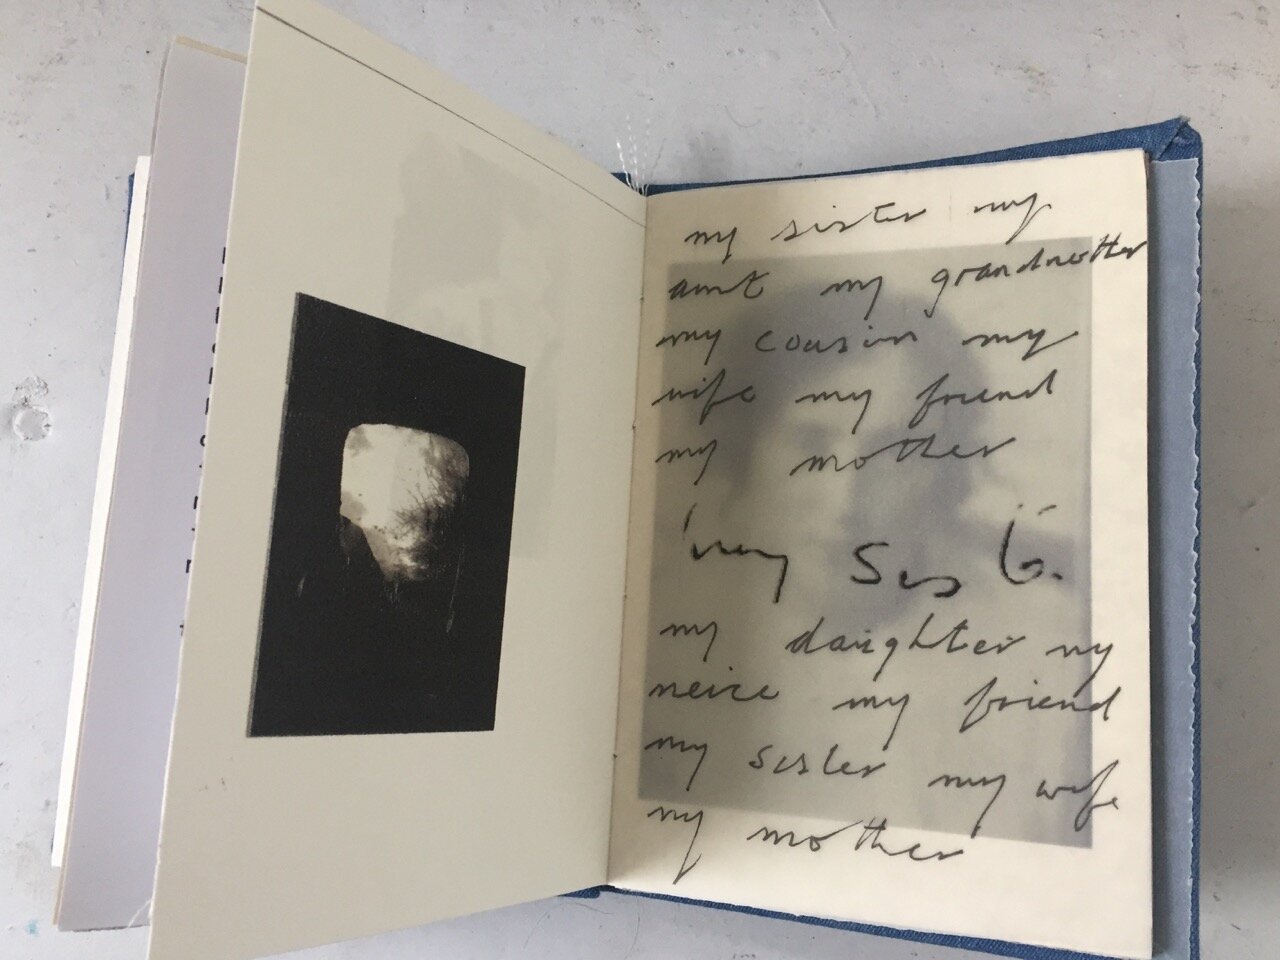 my sister my
aunt my grandmother
my cousin my
wife my friend
my mother
my
my daughter my
neice my friend
my sister my wife
my mother